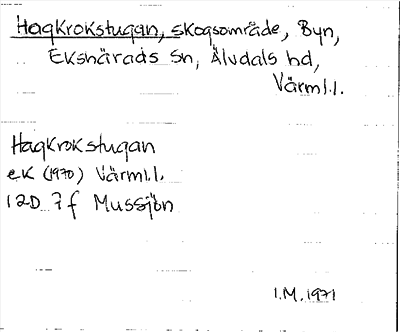 Hagkrokstugan, skogsområde, Byn,
Ekshärads sn, Älvdals hd,
Värml.l.
Hagkrokstugan
ek (1970) Värml.l.
12D 7f Mussjön
I.M. 1971